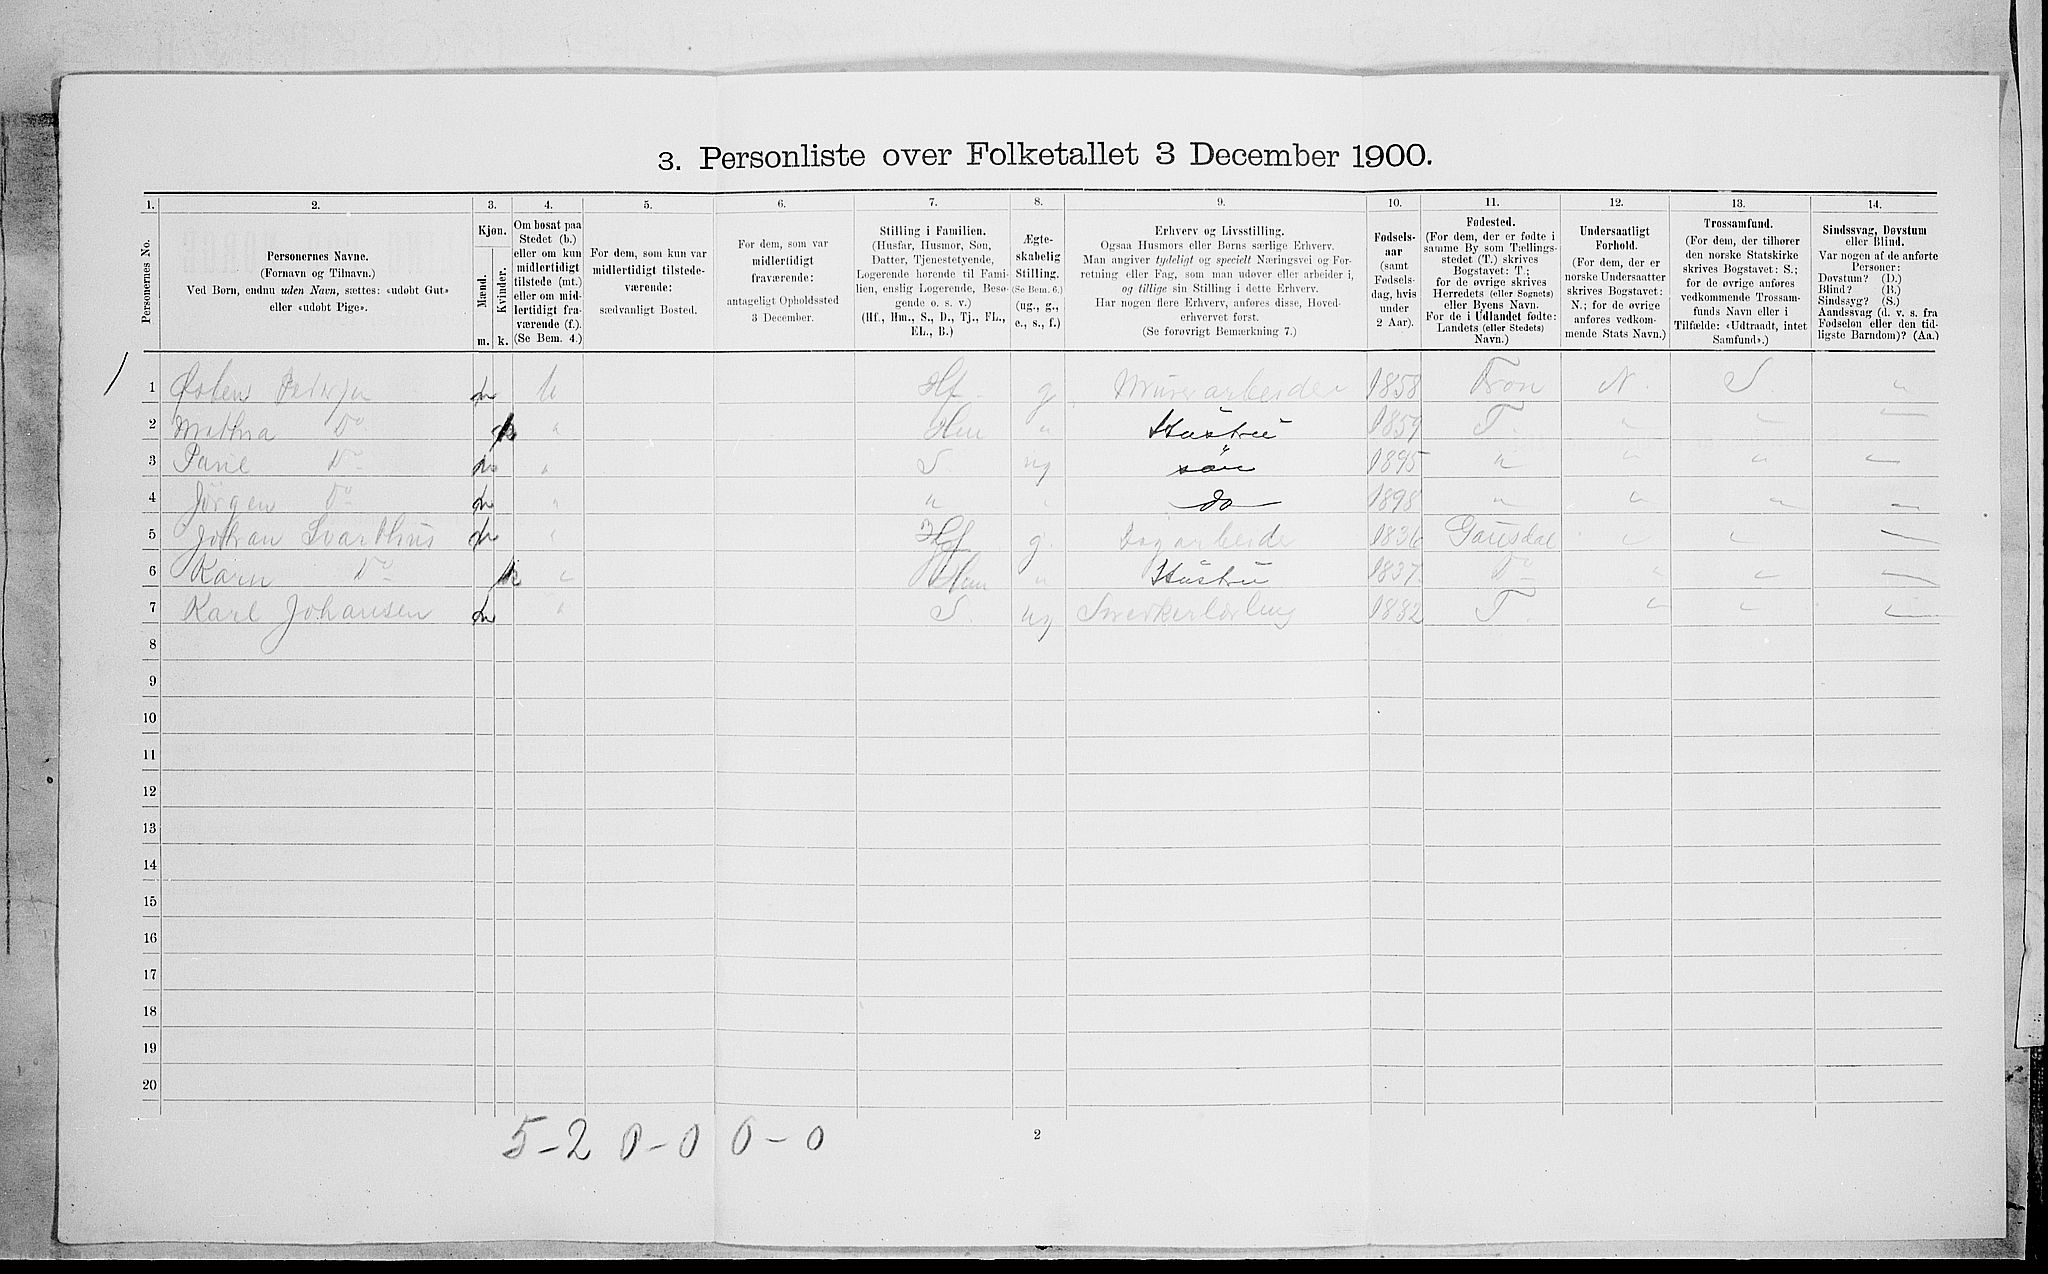 3. Personliste over Folketallet 3 December 1900.
1. 2. 3. 4. 5. 6. 7. 8. 9. 10. 11. 12. 13. 14.
Personernes No.
Personernes Navne.
(Fornavn og Tilnavn.)
Ved Børn, endnu uden Navn, sættes: «udøbt Gut»
eller «udøbt Pige».
Kjøn.
Mænd.
Kvinder.
m. k.
Om bosat paa
Stedet (b.)
eller om kun
midlertidigt
tilstede (mt.)
eller om mid-
lertidigt fra-
værende (f.).
(Se Bem. 4.)
For dem, som kun var
midlertidigt tilstede-
værende:
sædvanligt Bosted.
For dem, som var
midlertidigt
fraværende:
antageligt Opholdssted
3 December.
Stilling i Familien.
(Husfar, Husmor, Søn,
Datter, Tjenestetyende,
Logerende hørende til Fami-
lien, enslig Logerende, Besø-
gende o. s. v.)
(Hf., Hm., S., D., Tj., FL.,
EL., B.)
Ægte-
skabelig
Stilling.
(Se Bem. 6.)
(ug., g.,
e., s., f.)
Erhverv og Livsstilling.
Ogsaa Husmors eller Børns særlige Erhverv.
Man angiver tydeligt og specielt Næringsvei og For-
retning eller Fag, som man udøver eller arbeider i,
og tillige sin Stilling i dette Erhverv.
Har nogen flere Erhverv, anføres disse, Hoved-
erhvervet først.
(Se forøvrigt Bemærkning 7.)
Fødsels-
aar
(samt
Fødsels-
dag, hvis
under
2 Aar).
Fødested.
(For dem, der er fødte i
samme By som Tællings-
stedet (T.) skrives
Bogstavet: T.;
for de øvrige skrives
Herredets (eller Sognets)
eller Byens Navn.
For de i Udlandet fødte:
Landets (eller Stedets)
Navn.)
Undersaatligt
Forhold.
(For dem, der er
norske Undersaatter
skrives Bogstavet:
N.; for de øvrige
anføres vedkom-
mende Stats Navn.)
Trossamfund.
(For dem, der tilhører
den norske Statskirke
skrives Bogstavet: S.;
for de øvrige anføres
vedkommende Trossam-
funds Navn eller i
Tilfælde: «Udtraadt, intet
Samfund».)
Sindssvag, Døvstum
eller Blind.
Var nogen af de anførte
Personer:
Døvstum? (D.)
Blind? (B.)
Sindssyg? (S.)
Aandssvag (d. v. s. fra
Fødselen eller den tid-
ligste Barndom)? (Aa.)
1 Østen Pedersen m b Hf. g Murerarbeider 1858 Fron N S. "
2 Mathea Do k " Hm " Hustru 1859 T. " " "
3 Do m " S. ug søn 1895 " " " "
4 Jørgen Do m " " " do 1898 " " " "
5 Johan Svarthus m " Hf g. Dagarbeider 1836 Gausdal " " "
6 Karn Do k " Hm " Hustru 1837 Do " " "
7 Karl Johansen m " S. ug Snedkerlærling 1882 T. " " "
8
9
10
11
12
13
14
15
16
17
18
19
20
5-2 0-0 0-0
2